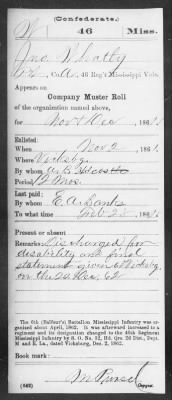 (Confederate.)
W 46 Miss.
Jno. Whatly
Co. A, 46 Reg't Mississippi Vols.
Appears on
Company Muster Roll
of the organization named above,
for Nov & Dec, 186
Enlisted:
When Nov 2, 186
Where Vicksbg.
By whom
Period 12 Mos.
Last paid:
By whom E. A. Banks
To what time Feb 28, 186
Present or absent
Remarks: Discharged for
disability and final
statement given at Vicksbg
on the 20 Dec. 62
The 6th (Balfour's) Battalion Mississippi Infantry was
organized about April, 1862. It was afterward increased to a
regiment and its designation changed to the 46th Regiment
Mississippi Infantry by S. O. No. 52, Hd. Qrs. 2d Dist., Dept.
M and E. La., dated Vicksburg, Dec. 2, 1862.
Book mark:
(642) Copyist.